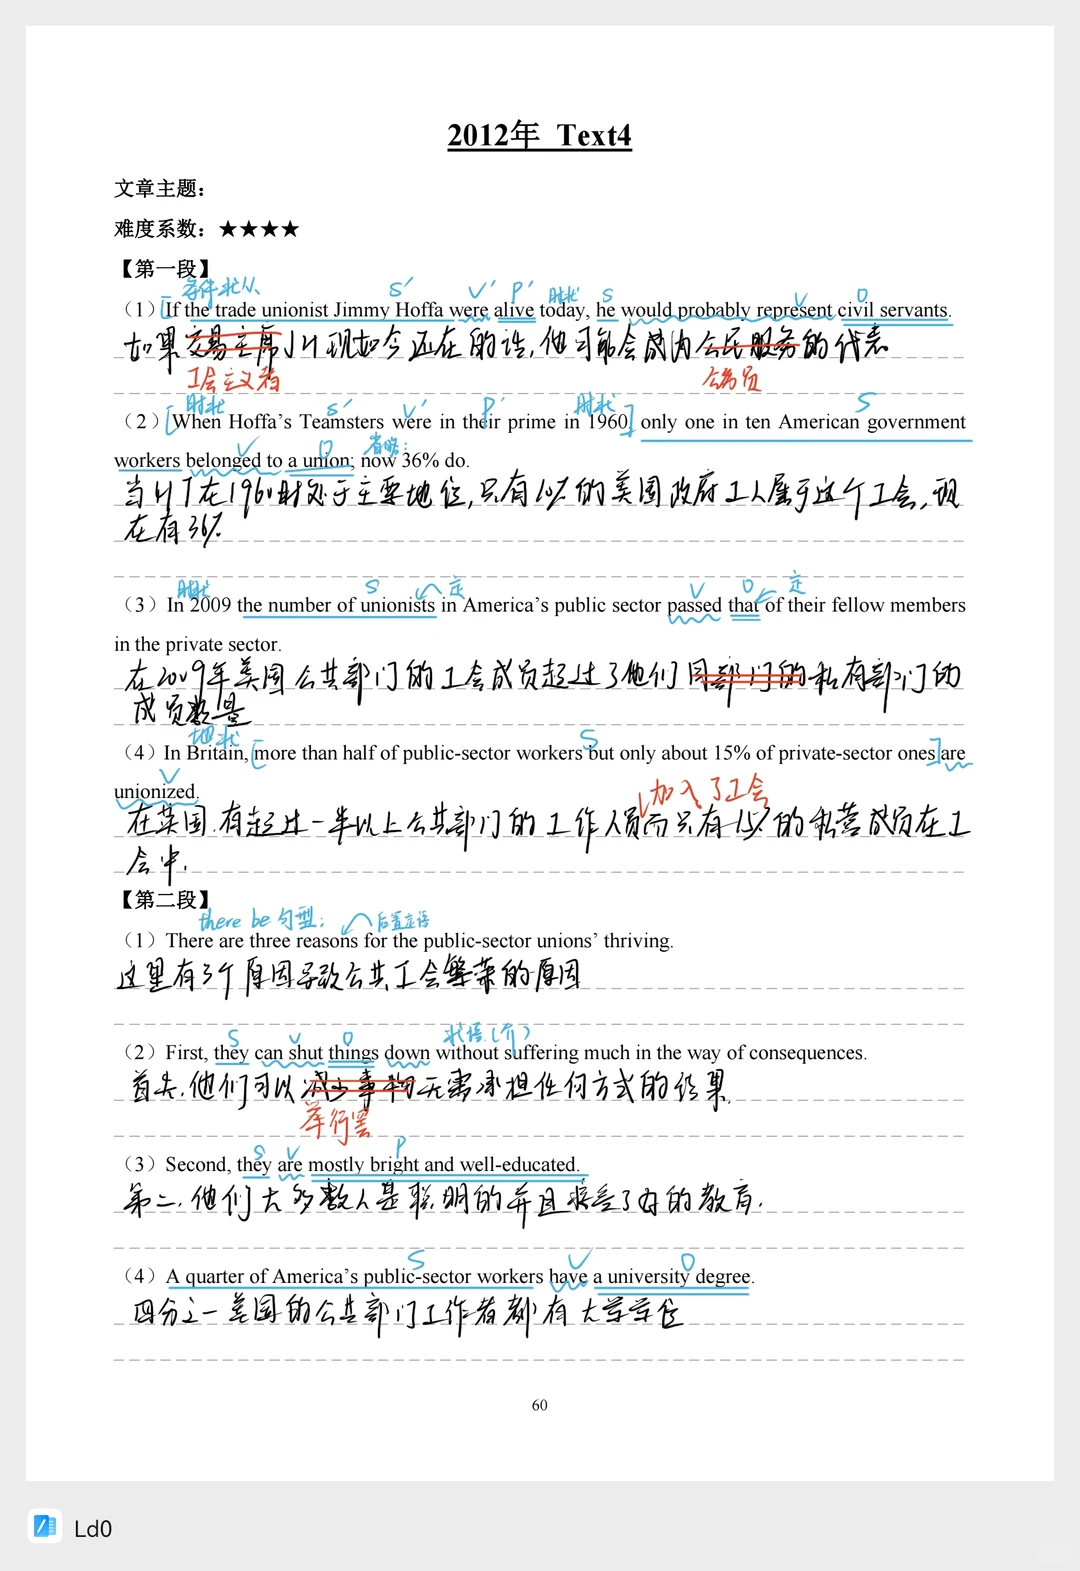 2012年 Text4
文章主题：
难度系数：★★★★
【第一段】
条件状从 S′ V′ P′ 时状 S V O
（1）If the trade unionist Jimmy Hoffa were alive today, he would probably represent civil servants.
如果交易主席JH现如今还在的话，他可能会成为公民服务的代表
工会主义者 公务员
时状 S′ V′ P′ 时状 S
（2）When Hoffa’s Teamsters were in their prime in 1960, only one in ten American government
V O 省略：
workers belonged to a union; now 36% do.
当HT在1960时处于主要地位，只有10%的美国政府工人属于这个工会，现
在有36%.
时状 S 定 V O 定
（3）In 2009 the number of unionists in America’s public sector passed that of their fellow members
in the private sector.
在2009年美国公共部门的工会成员超过了他们同部门的私有部门的
成员数量
地状 S
（4）In Britain, more than half of public-sector workers but only about 15% of private-sector ones are
V
unionized.
加入了工会
在英国，有超过一半以上公共部门的工作人员而只有15%的私营成员在工
会中.
【第二段】
there be 句型： 后置定语
（1）There are three reasons for the public-sector unions’ thriving.
这里有3个原因导致公共工会繁荣的原因
S V O 状语（介）
（2）First, they can shut things down without suffering much in the way of consequences.
首先，他们可以减少事物无需承担任何方式的结果.
举行罢
S V P
（3）Second, they are mostly bright and well-educated.
第二，他们大多数人是聪明的并且接受了好的教育.
S V O
（4）A quarter of America’s public-sector workers have a university degree.
四分之一美国的公共部门工作者都有大学学位
60
Ld0